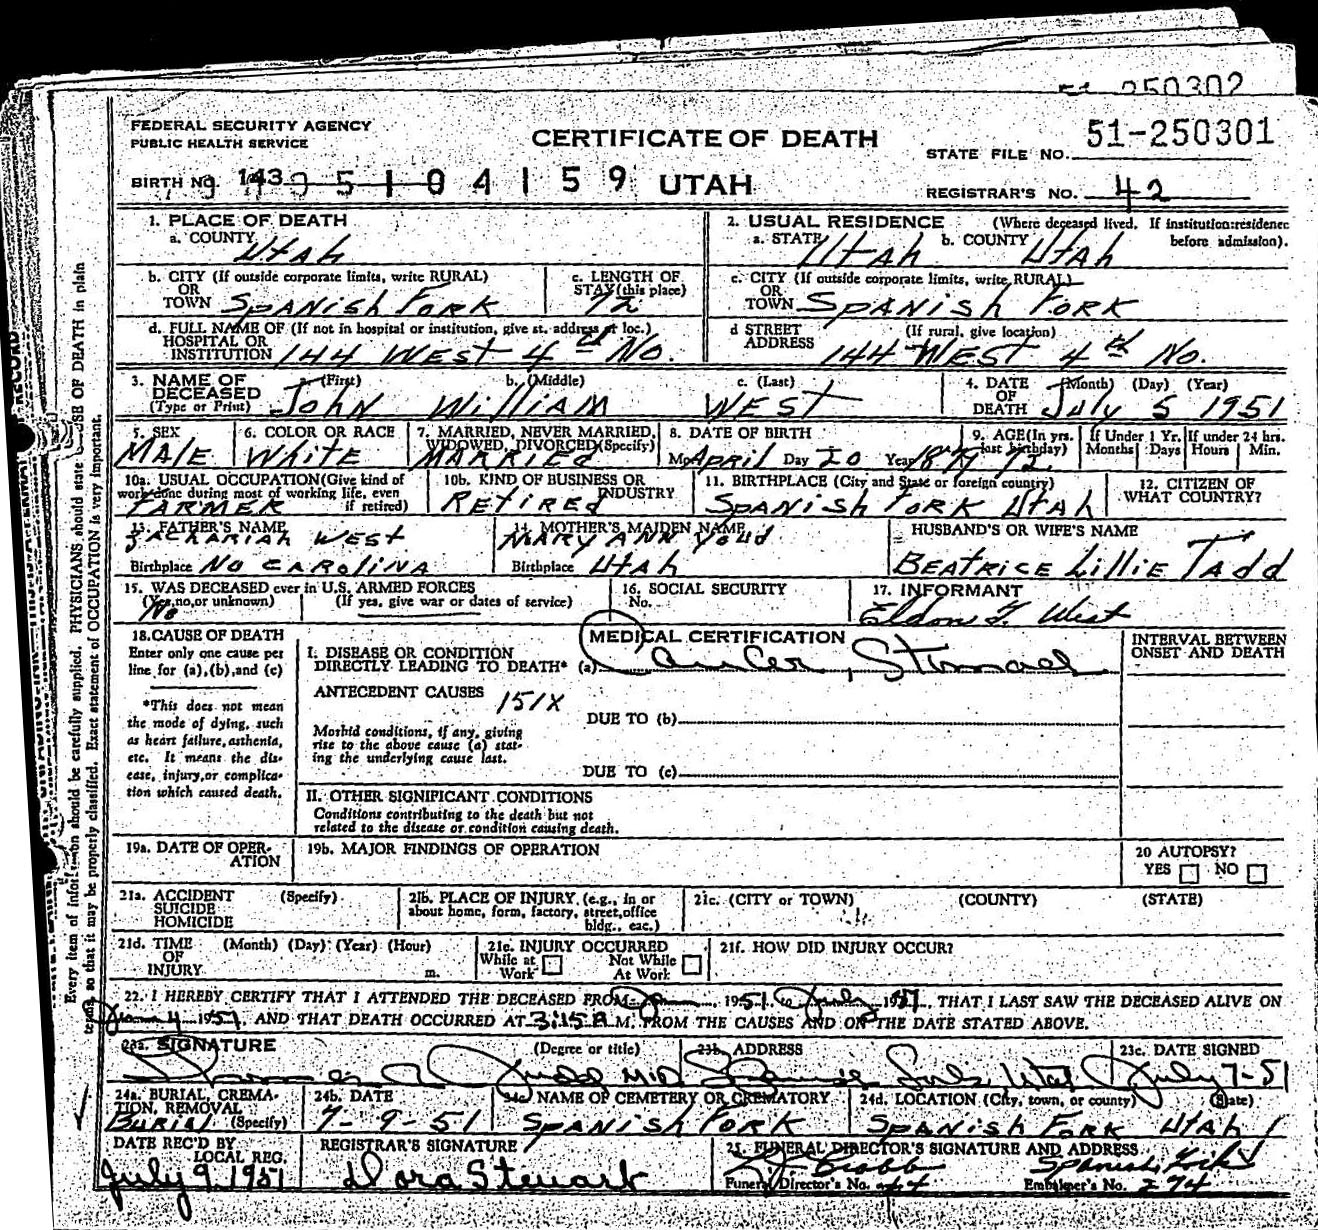 250302
FEDERAL SECURITY AGENCY
PUBLIC HEALTH SERVICE
CERTIFICATE OF DEATH
STATE FILE NO. 51-250301
BIRTH NO. 143 05104159 UTAH
REGISTRAR'S NO. 42
1. PLACE OF DEATH
a. COUNTY Utah
2. USUAL RESIDENCE (Where deceased lived. If institution:residence before admission).
a. STATE Utah b. COUNTY Utah
b. CITY (If outside corporate limits, write RURAL)
OR
TOWN Spanish Fork
c. LENGTH OF
STAY (this place)
72
c. CITY (If outside corporate limits, write RURAL)
OR
TOWN Spanish Fork
d. FULL NAME OF (If not in hospital or institution, give st. address or loc.)
HOSPITAL OR
INSTITUTION 144 West 4th No.
d STREET (If rural, give location)
ADDRESS 144 West 4th No.
3. NAME OF DECEASED (Type or Print)
a. (First) b. (Middle) c. (Last)
John William West
4. DATE OF DEATH (Month) (Day) (Year)
July 5 1951
5. SEX
Male
6. COLOR OR RACE
White
7. MARRIED, NEVER MARRIED, WIDOWED, DIVORCED (Specify)
Married
8. DATE OF BIRTH
Mo April Day 20 Year 1879
9. AGE (In yrs. last birthday)
72
If Under 1 Yr. Months Days
If under 24 hrs. Hours Min.
10a. USUAL OCCUPATION (Give kind of work done during most of working life, even if retired)
Farmer
10b. KIND OF BUSINESS OR INDUSTRY
Retired
11. BIRTHPLACE (City and State or foreign country)
Spanish Fork Utah
12. CITIZEN OF WHAT COUNTRY?
13. FATHER'S NAME
Zachariah West
Birthplace No Carolina
14. MOTHER'S MAIDEN NAME
Mary Ann Youd
Birthplace Utah
HUSBAND'S OR WIFE'S NAME
Beatrice Lillie Tadd
15. WAS DECEASED ever in U.S. ARMED FORCES
(Yes,no,or unknown) (If yes, give war or dates of service)
No
16. SOCIAL SECURITY
No.
17. INFORMANT
Eldon F. West
18. CAUSE OF DEATH
Enter only one cause per
line for (a),(b),and (c)
*This does not mean
the mode of dying, such
as heart failure,asthenia,
etc. It means the dis-
ease, injury,or complica-
tion which caused death.
MEDICAL CERTIFICATION
INTERVAL BETWEEN
ONSET AND DEATH
I. DISEASE OR CONDITION
DIRECTLY LEADING TO DEATH* (a) Cancer, Stomach
ANTECEDENT CAUSES 151X
DUE TO (b)
Morbid conditions, if any, giving
rise to the above cause (a) stat-
ing the underlying cause last.
DUE TO (c)
II. OTHER SIGNIFICANT CONDITIONS
Conditions contributing to the death but not
related to the disease or condition causing death.
19a. DATE OF OPER-
ATION
19b. MAJOR FINDINGS OF OPERATION
20 AUTOPSY?
YES NO
21a. ACCIDENT (Specify)
SUICIDE
HOMICIDE
21b. PLACE OF INJURY (e.g., in or
about home, form, factory, street,office
bldg., eac.)
21c. (CITY or TOWN) (COUNTY) (STATE)
21d. TIME (Month) (Day) (Year) (Hour)
OF
INJURY m.
21e. INJURY OCCURRED
While at Work
Not While At Work
21f. HOW DID INJURY OCCUR?
22. I HEREBY CERTIFY THAT I ATTENDED THE DECEASED FROM 1951 to July 1951, THAT I LAST SAW THE DECEASED ALIVE ON
4 1951, AND THAT DEATH OCCURRED AT 3:15 A M, FROM THE CAUSES AND ON THE DATE STATED ABOVE.
23a. SIGNATURE (Degree or title)
Judd M.D.
23b. ADDRESS
Spanish Fork Utah
23c. DATE SIGNED
July 7-51
24a. BURIAL, CREMA-
TION, REMOVAL
Burial (Specify)
24b. DATE
7-9-51
24c NAME OF CEMETERY OR CREMATORY
Spanish Fork
24d. LOCATION (City, town, or county) (State)
Spanish Fork Utah
DATE REC'D BY
LOCAL REG.
July 9 1951
REGISTRAR'S SIGNATURE
Dora Stewart
25. FUNERAL DIRECTOR'S SIGNATURE AND ADDRESS
Spanish Fork
Funeral Director's No. 44 Embalmer's No. 294
Every item of information should be carefully supplied. PHYSICIANS should state CAUSE OF DEATH in plain
terms, so that it may be properly classified. Exact statement of OCCUPATION is very important.
RECORD